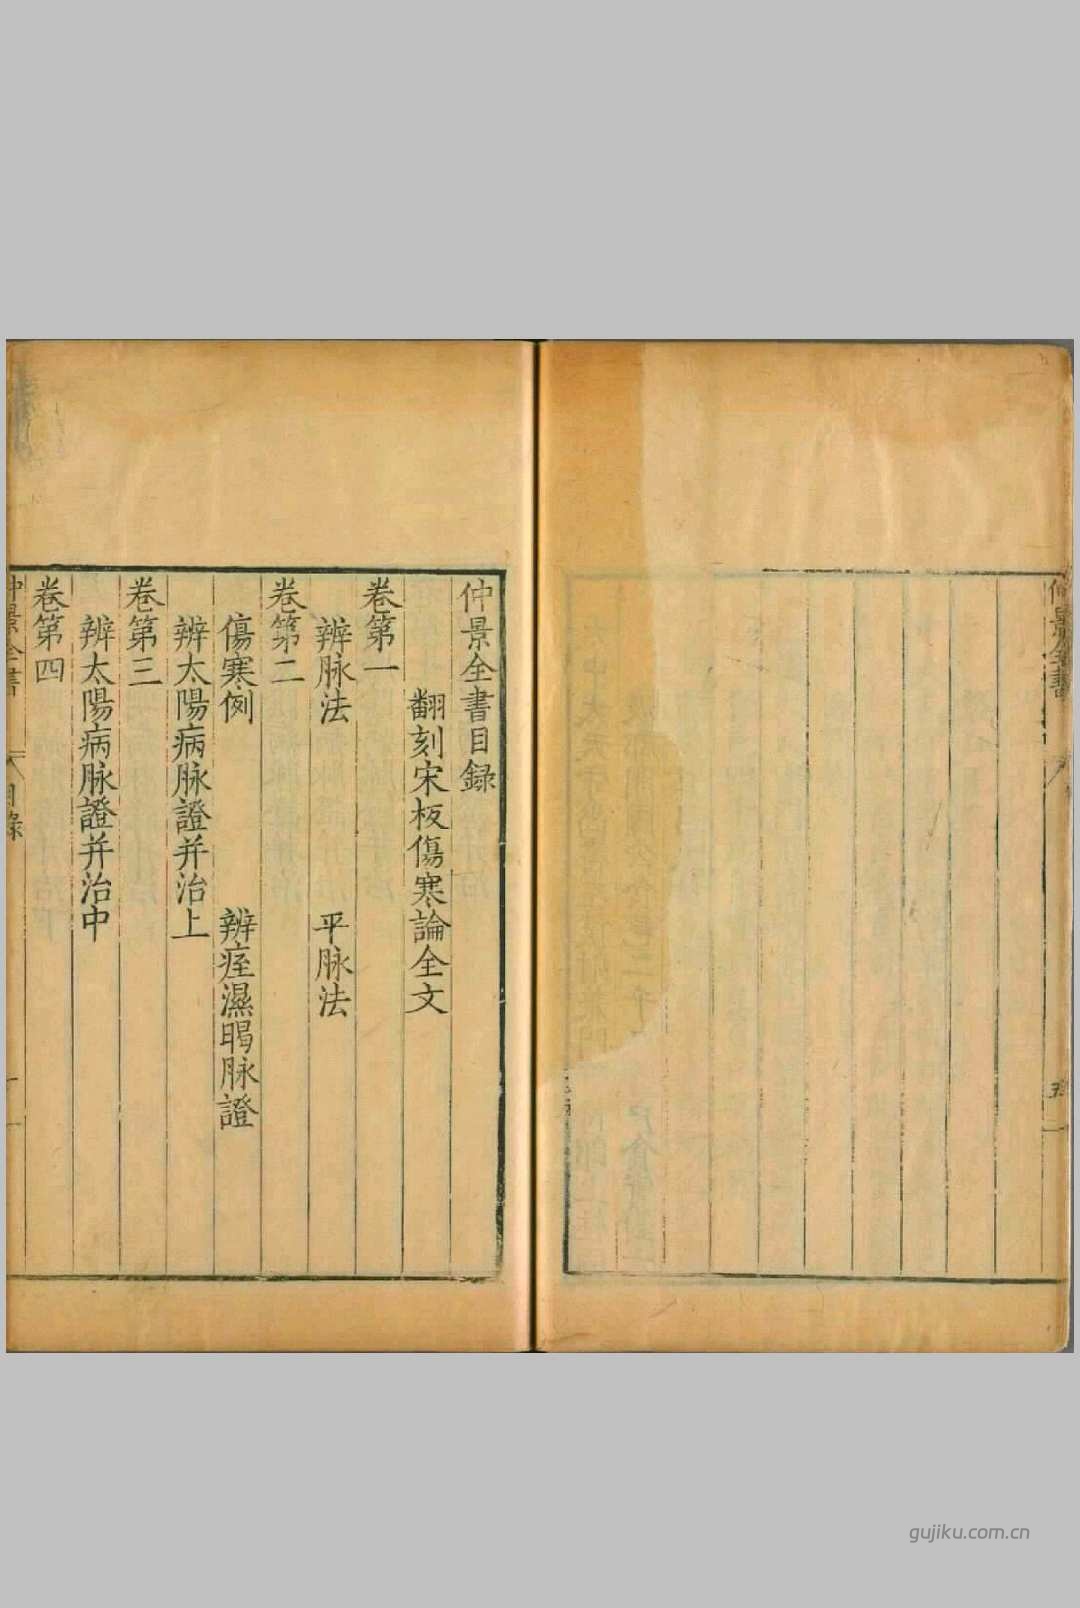 仲景全書
五
仲景全書目録
翻刻宋板傷寒論全文
卷第一
辨脉法 平脉法
卷第二
傷寒例 辨痓濕暍脉證
辨太陽病脉證并治上
卷第三
辨太陽病脉證并治中
卷第四
仲景全書 目録 一
gujiku.com.cn